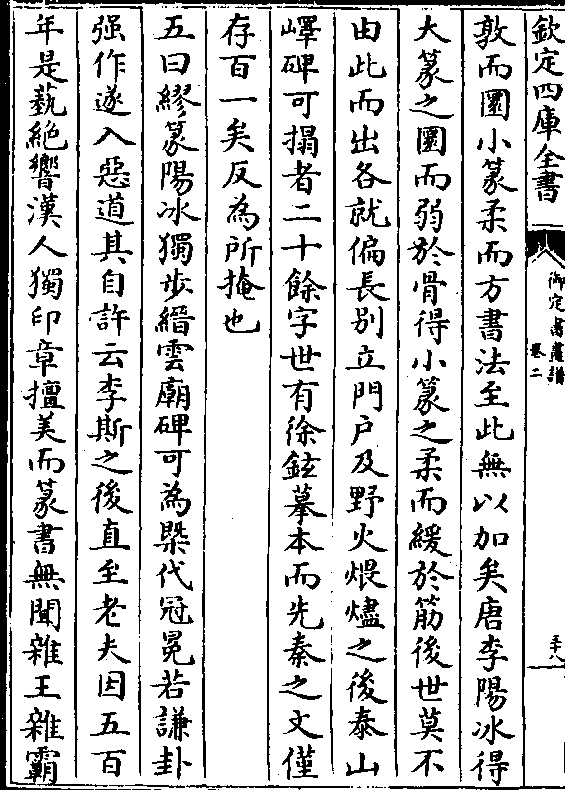 欽定四庫全書
御定書畫譜
卷二
五十八
敦而圓小篆柔而方書法至此無以加矣唐李陽冰得
大篆之圓而弱於骨得小篆之柔而緩於筋後世莫不
由此而出各就偏長别立門戶及野火煨燼之後泰山
嶧碑可搨者二十餘字世有徐鉉摹本而先秦之文僅
存百一矣反為所掩也
五曰繆篆陽冰獨步縉雲廟碑可為㮣代冠冕若謙卦
强作遂入惡道其自許云李斯之後直至老夫因五百
年是藝絶響漢人獨印章擅美而篆書無聞雜王雜霸